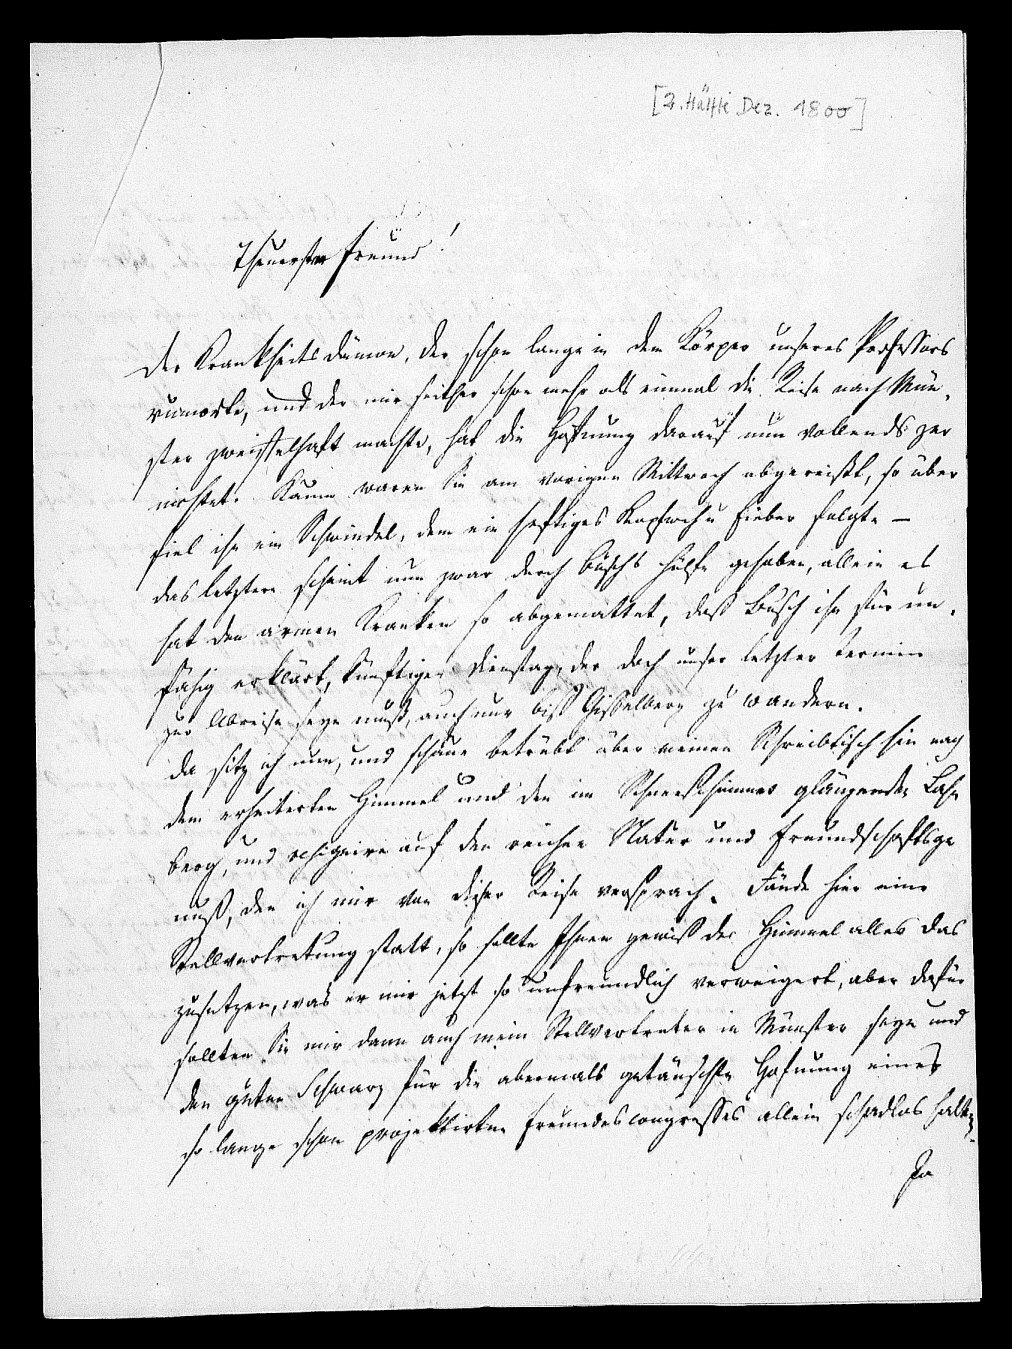 [2. Hälfte Dez. 1800]
Theuerster Freund!
Der Krankheits dämon, der schon lange in dem Körper unseres Professors
rumorte, und der mir seither schon mehr als einmal die Reise nach Mün-
ster zweifelhaft machte, hat die Hofnung darauf nun vollends zer
nichtet. Kaum waren Sie am vorigen Mittwoch abgereißt, so über
fiel ihn ein Schwindel, dem ein heftiges Kopfweh u Fieber folgte –
das letztere scheint nun zwar durch Buschs Hülfe gehoben, allein es
hat den armen Kranken so abgemattet, daß Busch ihn für un-
fähig erklärt, künftigen Dienstag, der doch unser letzter Termin
zur Abreise seyn muß, auch nur biß Gisselberg zu wandern.
Da sitz ich nun, und schaue betrübt über meinen Schreibtisch hin nach
dem erheiterten Himmel und den im Schneeschimmer glänzenden Lahn
berg, und resignire auf den reichen Natur und Freundschaftsge
nuß, den ich mir von dieser Reise versprach. Fände hier eine
Stellvertretung statt, so sollte Ihnen gewiß der Himmel alles das
zusetzen, was er mir jetzt so unfreundlich verweigert, aber dafür
sollten Sie mir dann auch mein Stellvertreter in Münster seyn und
den guten Schwarz für die abermals getäuschte Hofnung eines
so lange schon projektirten Freundescongresses allein schadlos halten.
Da